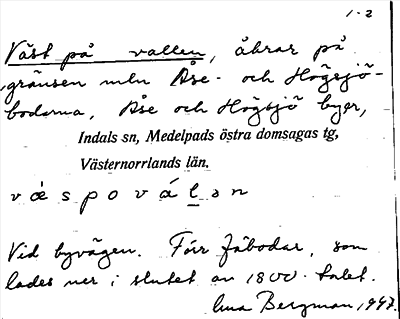 1-2
Väst på vallen, åkrar på
gränsen mln Åse- och Högsjö-
bodarna, Åse och Högsjö byar,
Indals sn, Medelpads östra domsagas tg,
Västernorrlands län.
væspoválən
Vid byvägen. Förr fäbodar, som
lades ner i slutet av 1800-talet.
Bergman, 1947.